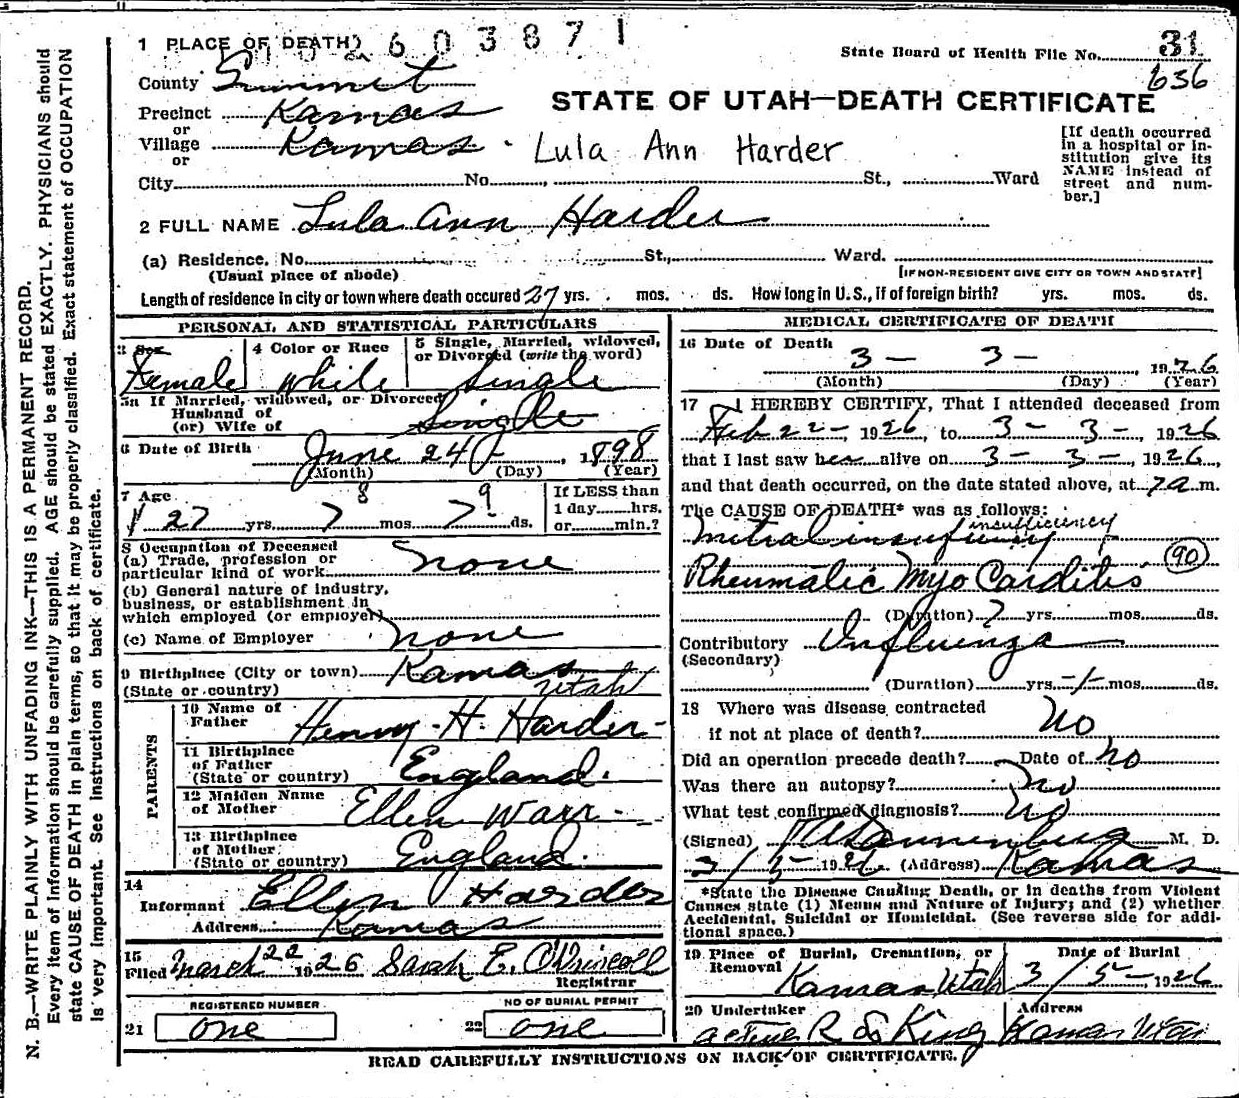 1 PLACE OF DEATH 2603871
State Board of Health File No. 31
636
County Summit
STATE OF UTAH—DEATH CERTIFICATE
Precinct Kamas
or
Village Kamas. Lula Ann Harder
or
City No. St., Ward
[If death occurred
in a hospital or in-
stitution give its
NAME instead of
street and num-
ber.]
2 FULL NAME Lula Ann Harder
(a) Residence. No. St., Ward.
(Usual place of abode)
[IF NON-RESIDENT GIVE CITY OR TOWN AND STATE]
Length of residence in city or town where death occured 27 yrs. mos. ds. How long in U.S., if of foreign birth? yrs. mos. ds.
PERSONAL AND STATISTICAL PARTICULARS
3 Sex
Female
4 Color or Race
White
5 Single, Married, widowed,
or Divorced (write the word)
Single
5a If Married, widowed, or Divorced
Husband of
(or) Wife of Single
6 Date of Birth June 24 1898
(Month) (Day) (Year)
7 Age 8 9
27 yrs. 7 mos. 7 ds.
If LESS than
1 day hrs.
or min.?
8 Occupation of Deceased
(a) Trade, profession or
particular kind of work none
(b) General nature of industry,
business, or establishment in
which employed (or employer)
(c) Name of Employer none
9 Birthplace (City or town) Kamas
(State or country) Utah
PARENTS
10 Name of
Father Henry H. Harder
11 Birthplace
of Father
(State or country) England.
12 Maiden Name
of Mother Ellen Warr
13 Birthplace
of Mother
(State or country) England.
14
Informant Ellen Harder
Address Kamas
15
Filed March 22 1926 Sarah E. O'Driscoll
Registrar
REGISTERED NUMBER
21 one
NO OF BURIAL PERMIT
22 one
MEDICAL CERTIFICATE OF DEATH
16 Date of Death
3 - 3 - , 1926
(Month) (Day) (Year)
17 I HEREBY CERTIFY, That I attended deceased from
Feb 22 -, 1926, to 3 - 3 -, 1926
that I last saw her alive on 3 - 3 -, 1926,
and that death occurred, on the date stated above, at 7 a m.
The CAUSE OF DEATH* was as follows:
insufficiency
Mitral insufficiency
Rheumatic Myo Carditis 90
(Duration) 7 yrs. mos. ds.
Contributory Influenza
(Secondary)
(Duration) yrs. -1- mos. ds.
18 Where was disease contracted
if not at place of death? No
Did an operation precede death? Date of no
Was there an autopsy? no
What test confirmed diagnosis? no
(Signed) M. D.
3/5 1926 (Address) Kamas
*State the Disease Causing Death, or in deaths from Violent
Causes state (1) Means and Nature of Injury; and (2) whether
Accidental, Suicidal or Homicidal. (See reverse side for addi-
tional space.)
19 Place of Burial, Cremation, or
Removal Kamas Utah
Date of Burial
3/5 -, 1926
20 Undertaker
King
Address
Kamas Utah
READ CAREFULLY INSTRUCTIONS ON BACK OF CERTIFICATE.
N. B.—WRITE PLAINLY WITH UNFADING INK—THIS IS A PERMANENT RECORD.
Every item of information should be carefully supplied. AGE should be stated EXACTLY. PHYSICIANS should
state CAUSE OF DEATH in plain terms, so that it may be properly classified. Exact statement of OCCUPATION
is very important. See instructions on back of certificate.